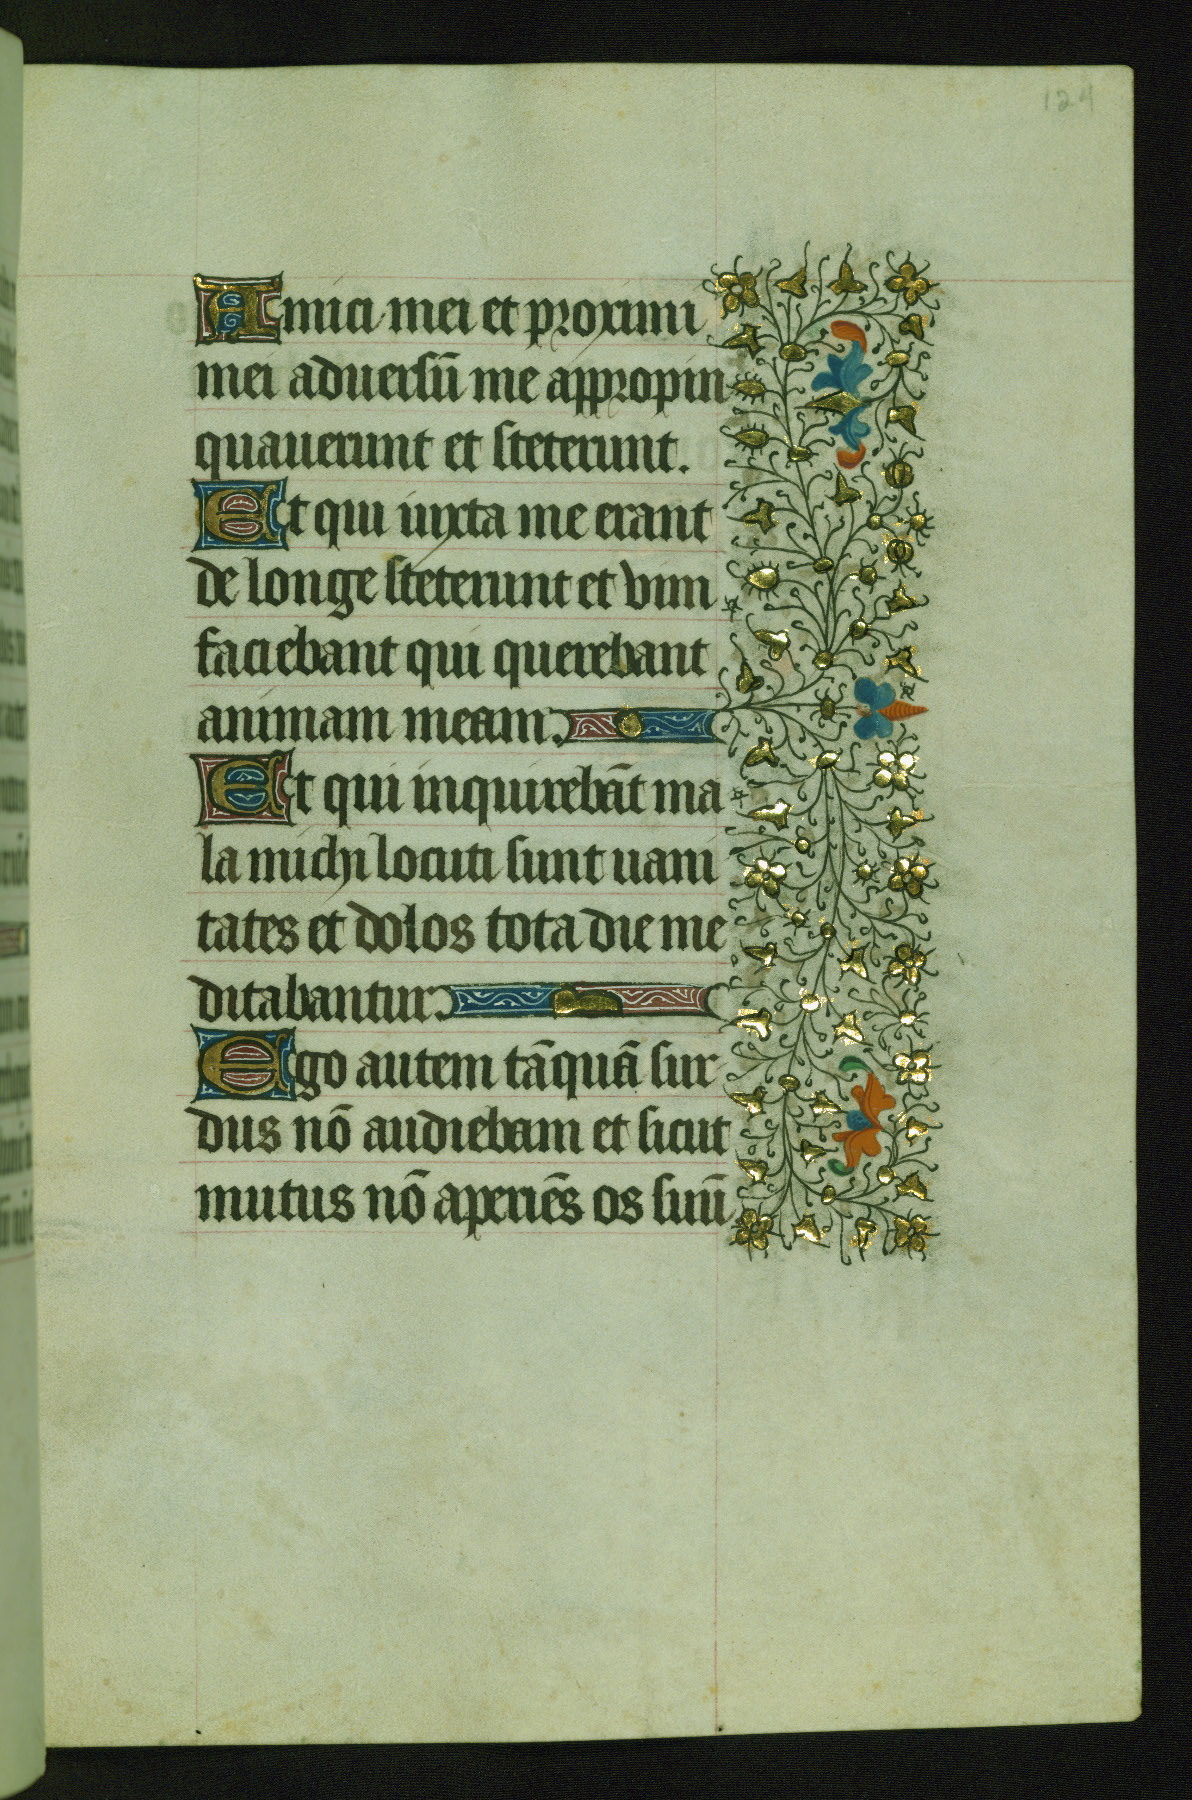 124
Amici mei et proximi
mei aduersū me appropin
quauerunt et steterunt.
Et qui iuxta me erant
de longe steterunt et vim
faciebant qui querebant
animam meam.
Et qui inquirebāt ma
la michi locuti sunt uani
tates et dolos tota die me
ditabantur.
Ego autem tāquā sur
dus nō audiebam et sicut
mutus nō aperiēs os suū